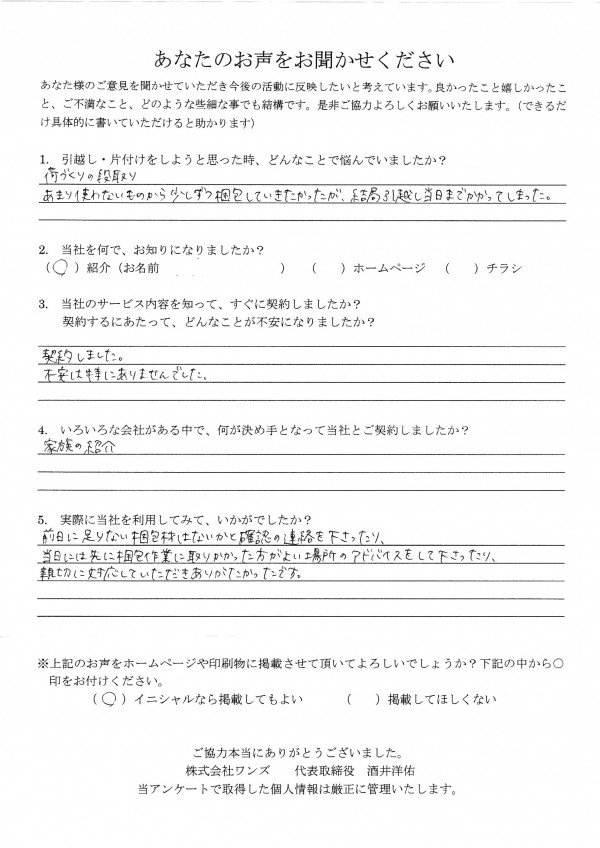 あなたのお声をお聞かせください
あなた様のご意見を聞かせていただき今後の活動に反映したいと考えています。良かったこと嬉しかったこ
と、ご不満なこと、どのような些細な事でも結構です。是非ご協力よろしくお願いいたします。（できるだ
け具体的に書いていただけると助かります）
1. 引越し・片付けをしようと思った時、どんなことで悩んでいましたか？
荷づくりの段取り
あまり使わないものから少しずつ梱包していきたかったが、結局引越し当日までかかってしまった。
2. 当社を何で、お知りになりましたか？
（○）紹介（お名前　　　　　　　　　）　（　）ホームページ　（　）チラシ
3. 当社のサービス内容を知って、すぐに契約しましたか？
契約するにあたって、どんなことが不安になりましたか？
契約しました。
不安は特にありませんでした。
4. いろいろな会社がある中で、何が決め手となって当社とご契約しましたか？
家族の紹介
5. 実際に当社を利用してみて、いかがでしたか？
前日に足りない梱包材はないかと確認の連絡を下さったり、
当日には先に梱包作業に取りかかった方がよい場所のアドバイスをして下さったり、
親切に対応していただきありがたかったです。
※上記のお声をホームページや印刷物に掲載させて頂いてよろしいでしょうか？下記の中から○
印をお付けください。
（○）イニシャルなら掲載してもよい　　（　）掲載してほしくない
ご協力本当にありがとうございました。
株式会社ワンズ　　代表取締役　酒井洋佑
当アンケートで取得した個人情報は厳正に管理いたします。